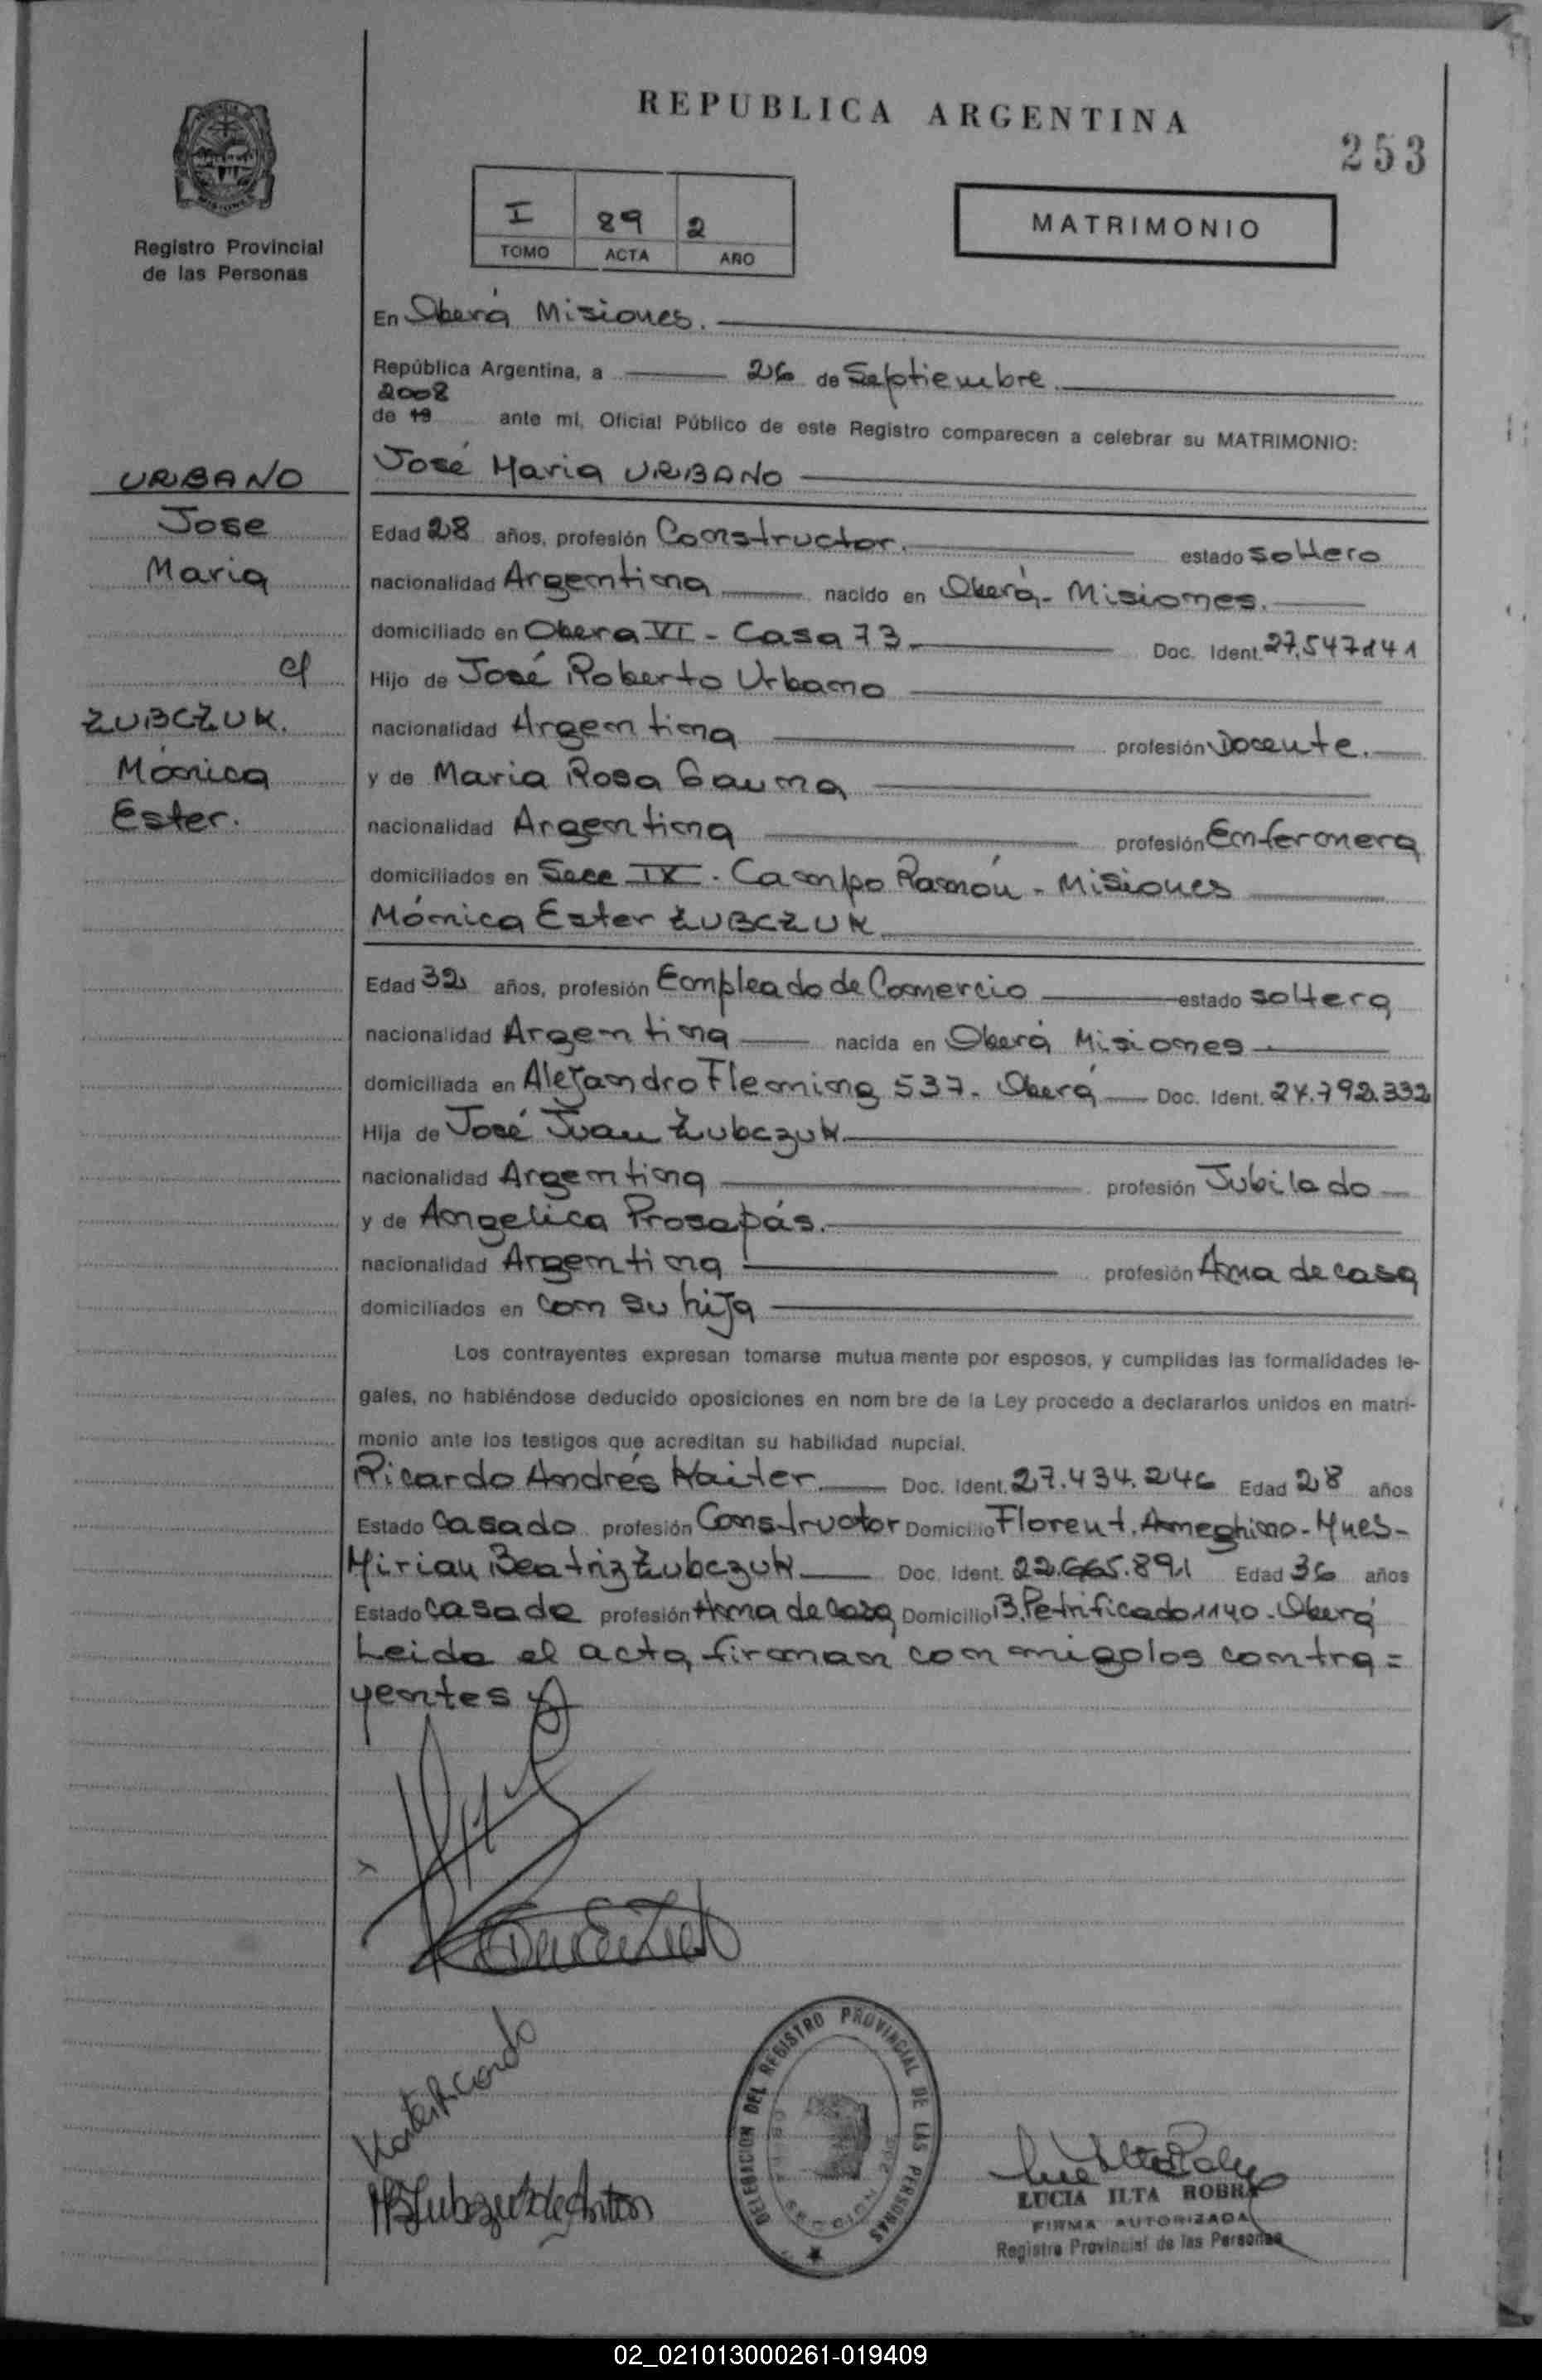 REPUBLICA ARGENTINA
253
Registro Provincial
de las Personas
I 89 2
TOMO ACTA AÑO
MATRIMONIO
En Oberá Misiones.
República Argentina, a 26 de Septiembre
2008
de 19 ante mí, Oficial Público de este Registro comparecen a celebrar su MATRIMONIO:
José Maria URBANO
URBANO
Jose
Maria
c/
ZUBCZUK.
Mónica
Ester.
Edad 28 años, profesión Constructor. estado soltero
nacionalidad Argentina nacido en Oberá - Misiones.
domiciliado en Obera VI - Casa 73. Doc. Ident. 27.547141
Hijo de José Roberto Urbano
nacionalidad Argentina profesión Docente.
y de Maria Rosa Gauna
nacionalidad Argentina profesión Enfermera
domiciliados en Secc IX - Campo Ramón - Misiones
Mónica Ester ZUBCZUK
Edad 32 años, profesión Empleado de Comercio estado soltera
nacionalidad Argentina nacida en Oberá Misiones
domiciliada en Alejandro Fleming 537. Oberá Doc. Ident. 24.792.332
Hija de José Juan Zubczuk
nacionalidad Argentina profesión Jubilado
y de Angelica Prosapás.
nacionalidad Argentina profesión Ama de casa
domiciliados en con su hija
Los contrayentes expresan tomarse mutua mente por esposos, y cumplidas las formalidades le-
gales, no habiéndose deducido oposiciones en nom bre de la Ley procedo a declararlos unidos en matri-
monio ante los testigos que acreditan su habilidad nupcial.
Ricardo Andrés Kaiter Doc. Ident. 27.434.246 Edad 28 años
Estado Casado profesión Constructor Domicilio Florent. Ameghino - Mnes -
Mirian Beatriz Zubczuk Doc. Ident. 22.665.891 Edad 36 años
Estado casada profesión Ama de casa Domicilio B. Petrificado 1140. Oberá
Leida el acta, firman conmigo los contra =
yentes y
DELEGACION DEL REGISTRO PROVINCIAL DE LAS PERSONAS
LUCIA ILTA ROBRA
FIRMA AUTORIZADA
Registro Provincial de las Personas
02_021013000261-019409